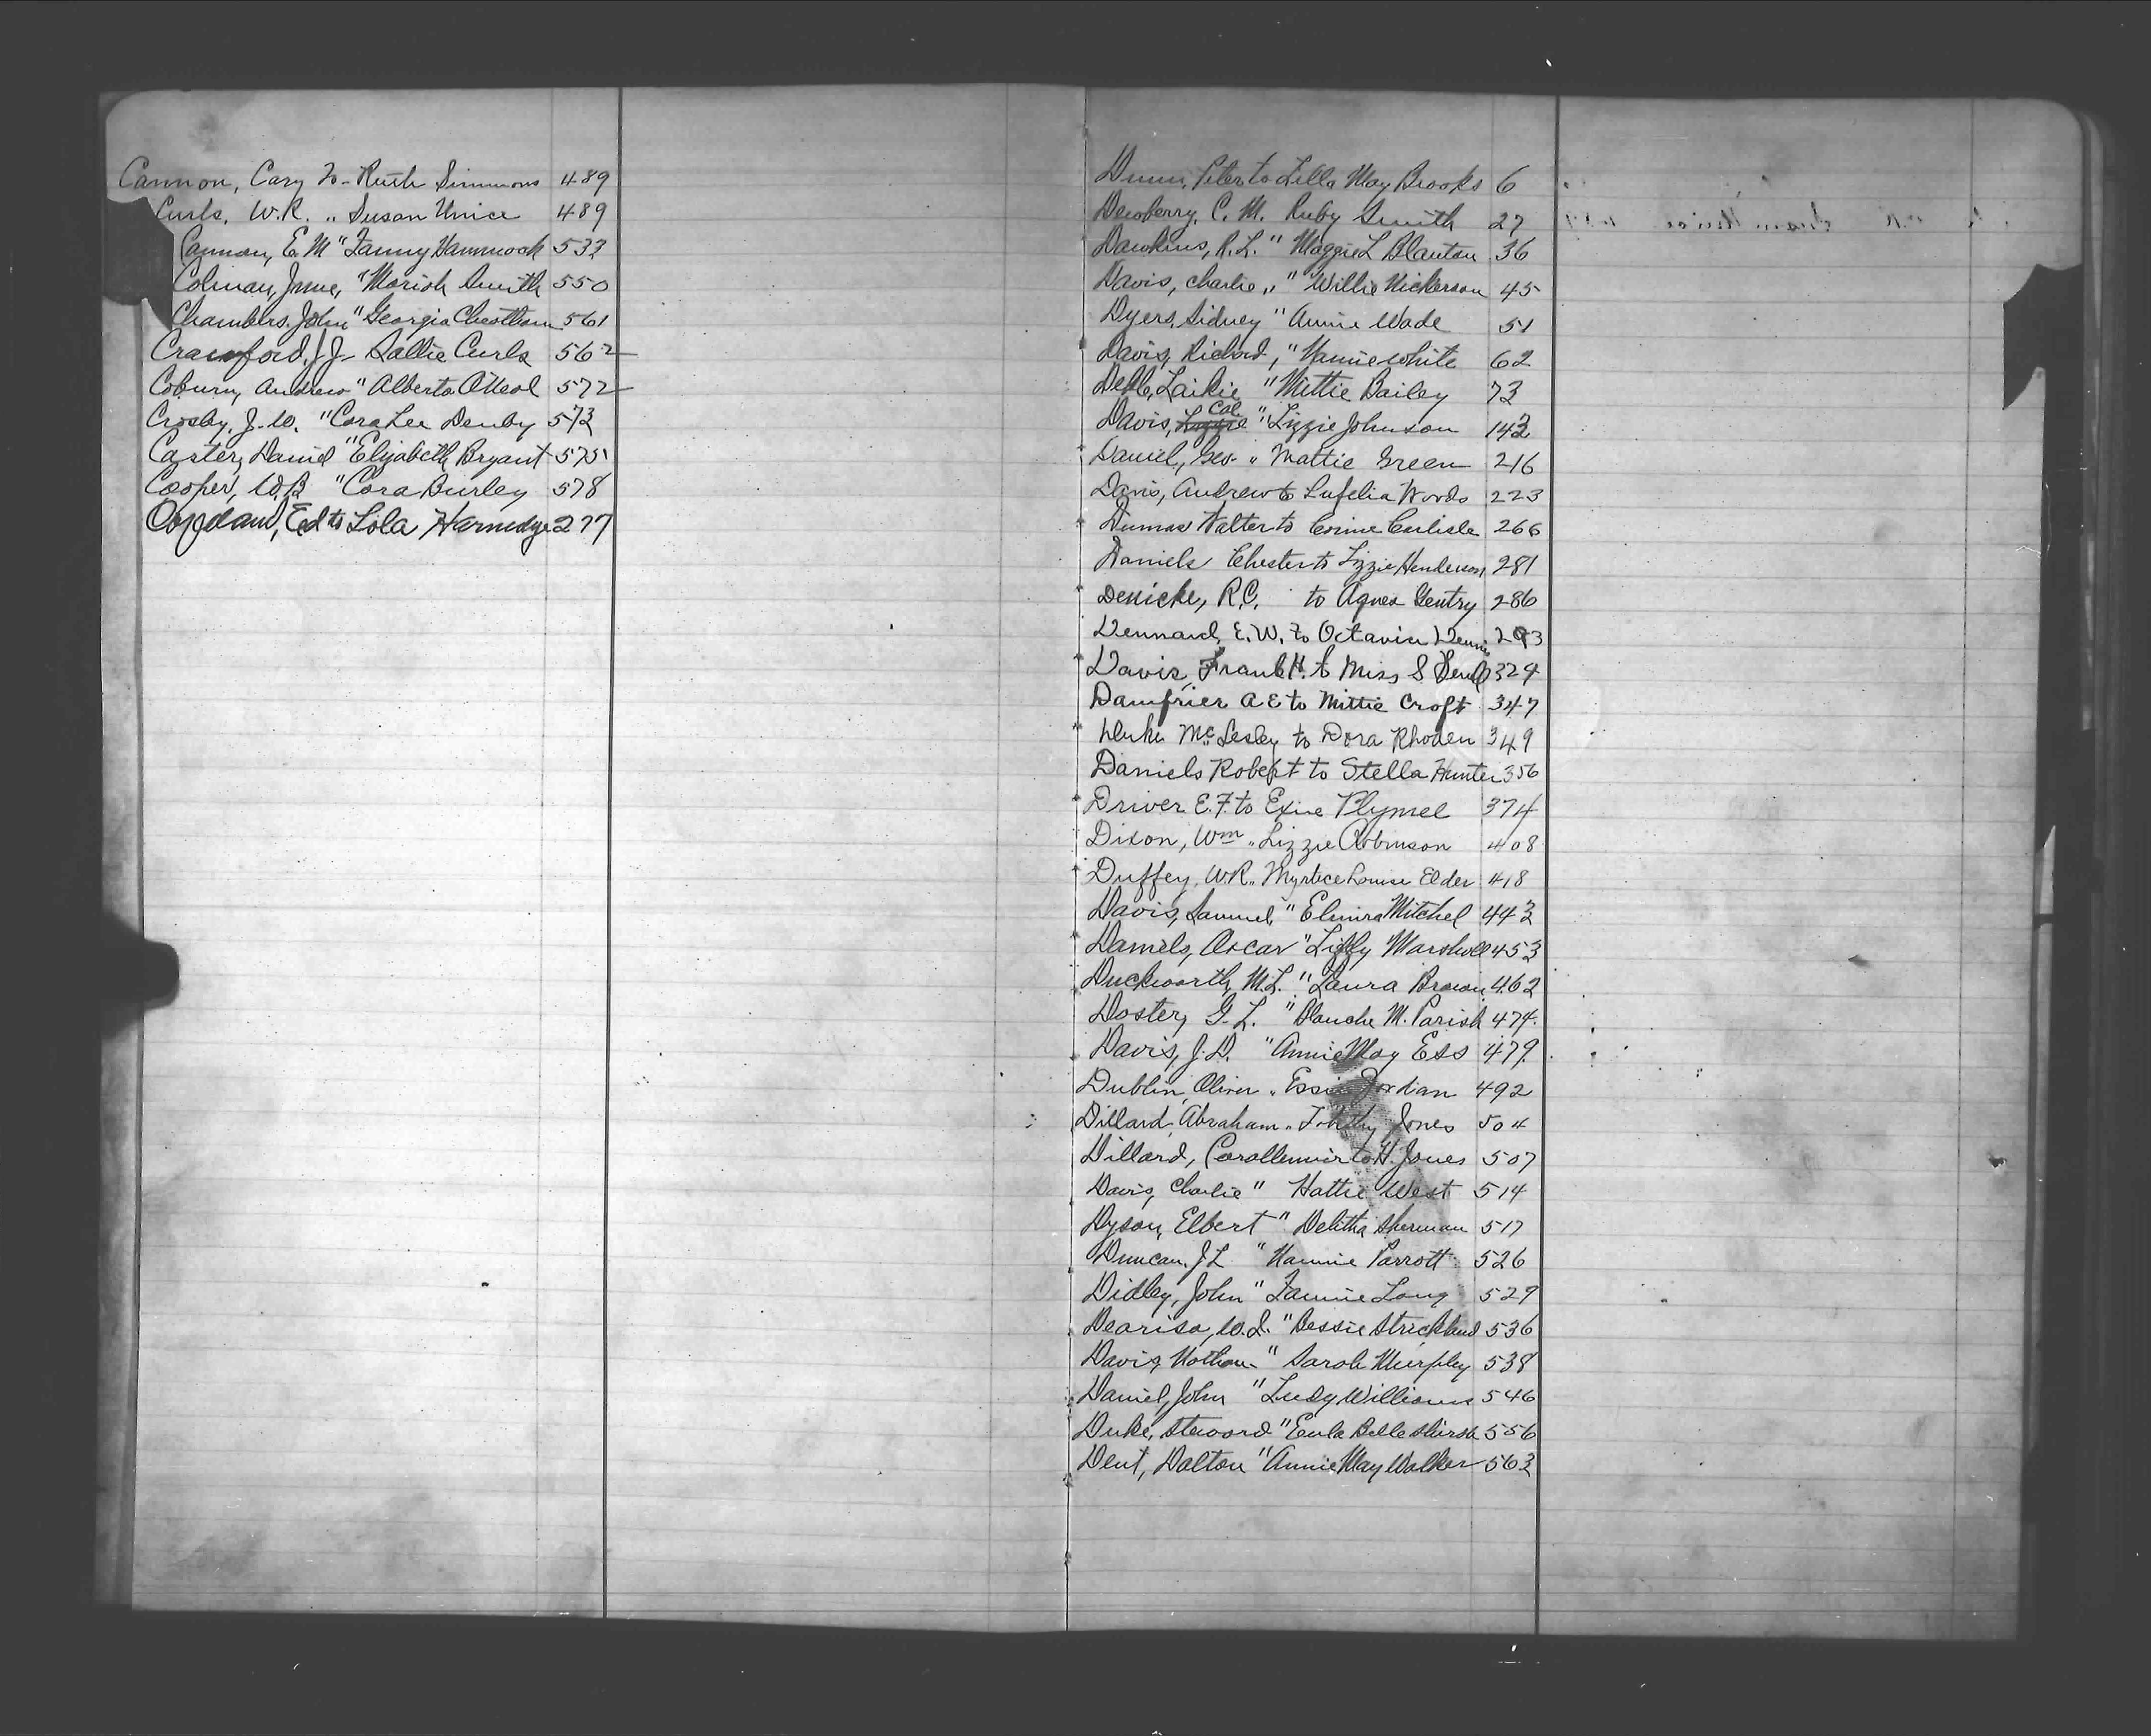 Cannon, Cary to Ruth Simmons 489
Curls, W.R. " Susan Unice 489
Cannon, E.M " Fanny Hammock 533
Colman, " Moriah Smith 550
Chambers, John " Georgia Cheatham 561
Crawford, J.J. Sallie Curls 562
Coburn, Andrew " Alberta O'Neal 572
Crosby, J.W. " Cora Lee Denby 573
Carter, Daniel " Elizabeth Bryant 575
Cooper, W.B " Cora Burley 578
Ed to Lola 277
Dunn, Peter to Lilla May Brooks 6
Dewberry, C. M. Ruby Smith 27
Dawkins, R.L. " Maggie L Blanton 36
Davis, Charlie, " Willie Nickerson 45
Dyers, Sidney " Annie Wade 51
Davis, Richard, " Nannie White 62
" Mittie Bailey 73
Davis, Cal " Lizzie Johnson 143
Daniel, Geo. " Mattie Green 216
Davis, Andrew to Lufelia Woods 223
Dumas Walter to Corine Carlisle 266
Daniels Chester to Lizzie Henderson 281
Denicke, R.C. to Agnes Gentry 286
Dennard, E.W. to Octavia 293
Davis, Frank H. to Miss S 324
Damfrier A E to Mittie Croft 347
Duke McLesley to Dora Rhoden 349
Daniels Robert to Stella Hunter 356
Driver E.F. to Exie Plymel 374
Dixon, Wm " Lizzie Robinson 408
Duffey, W.R. " Myrtice Louise Elder 418
Davis, Samuel " Elmira Mitchel 443
Daniels, Oscar " Marshall 453
Duckworth, M.L. " Laura Brown 462
Doster, G.L. " Blanche M. Parish 474.
Davis, J.D. " Annie May Ess 479
Dublin, Oliver " Essie Jordan 492
Dillard, Abraham " Jones 504
Dillard, to H. Jones 507
Davis, Charlie " Hattie West 514
Dyson, Elbert " Delitha Sherman 517
Duncan, J L " Nannie Parrott 526
Didley, John " Fannie Long 529
Deariso, W.D. " Bessie Strickland 536
Davis, Nathan " Sarah Murphey 538
Daniel, John " Ludy Williams 546
Duke, Steward " Eula Belle 556
Dent, Dalton " Annie May Walker 563